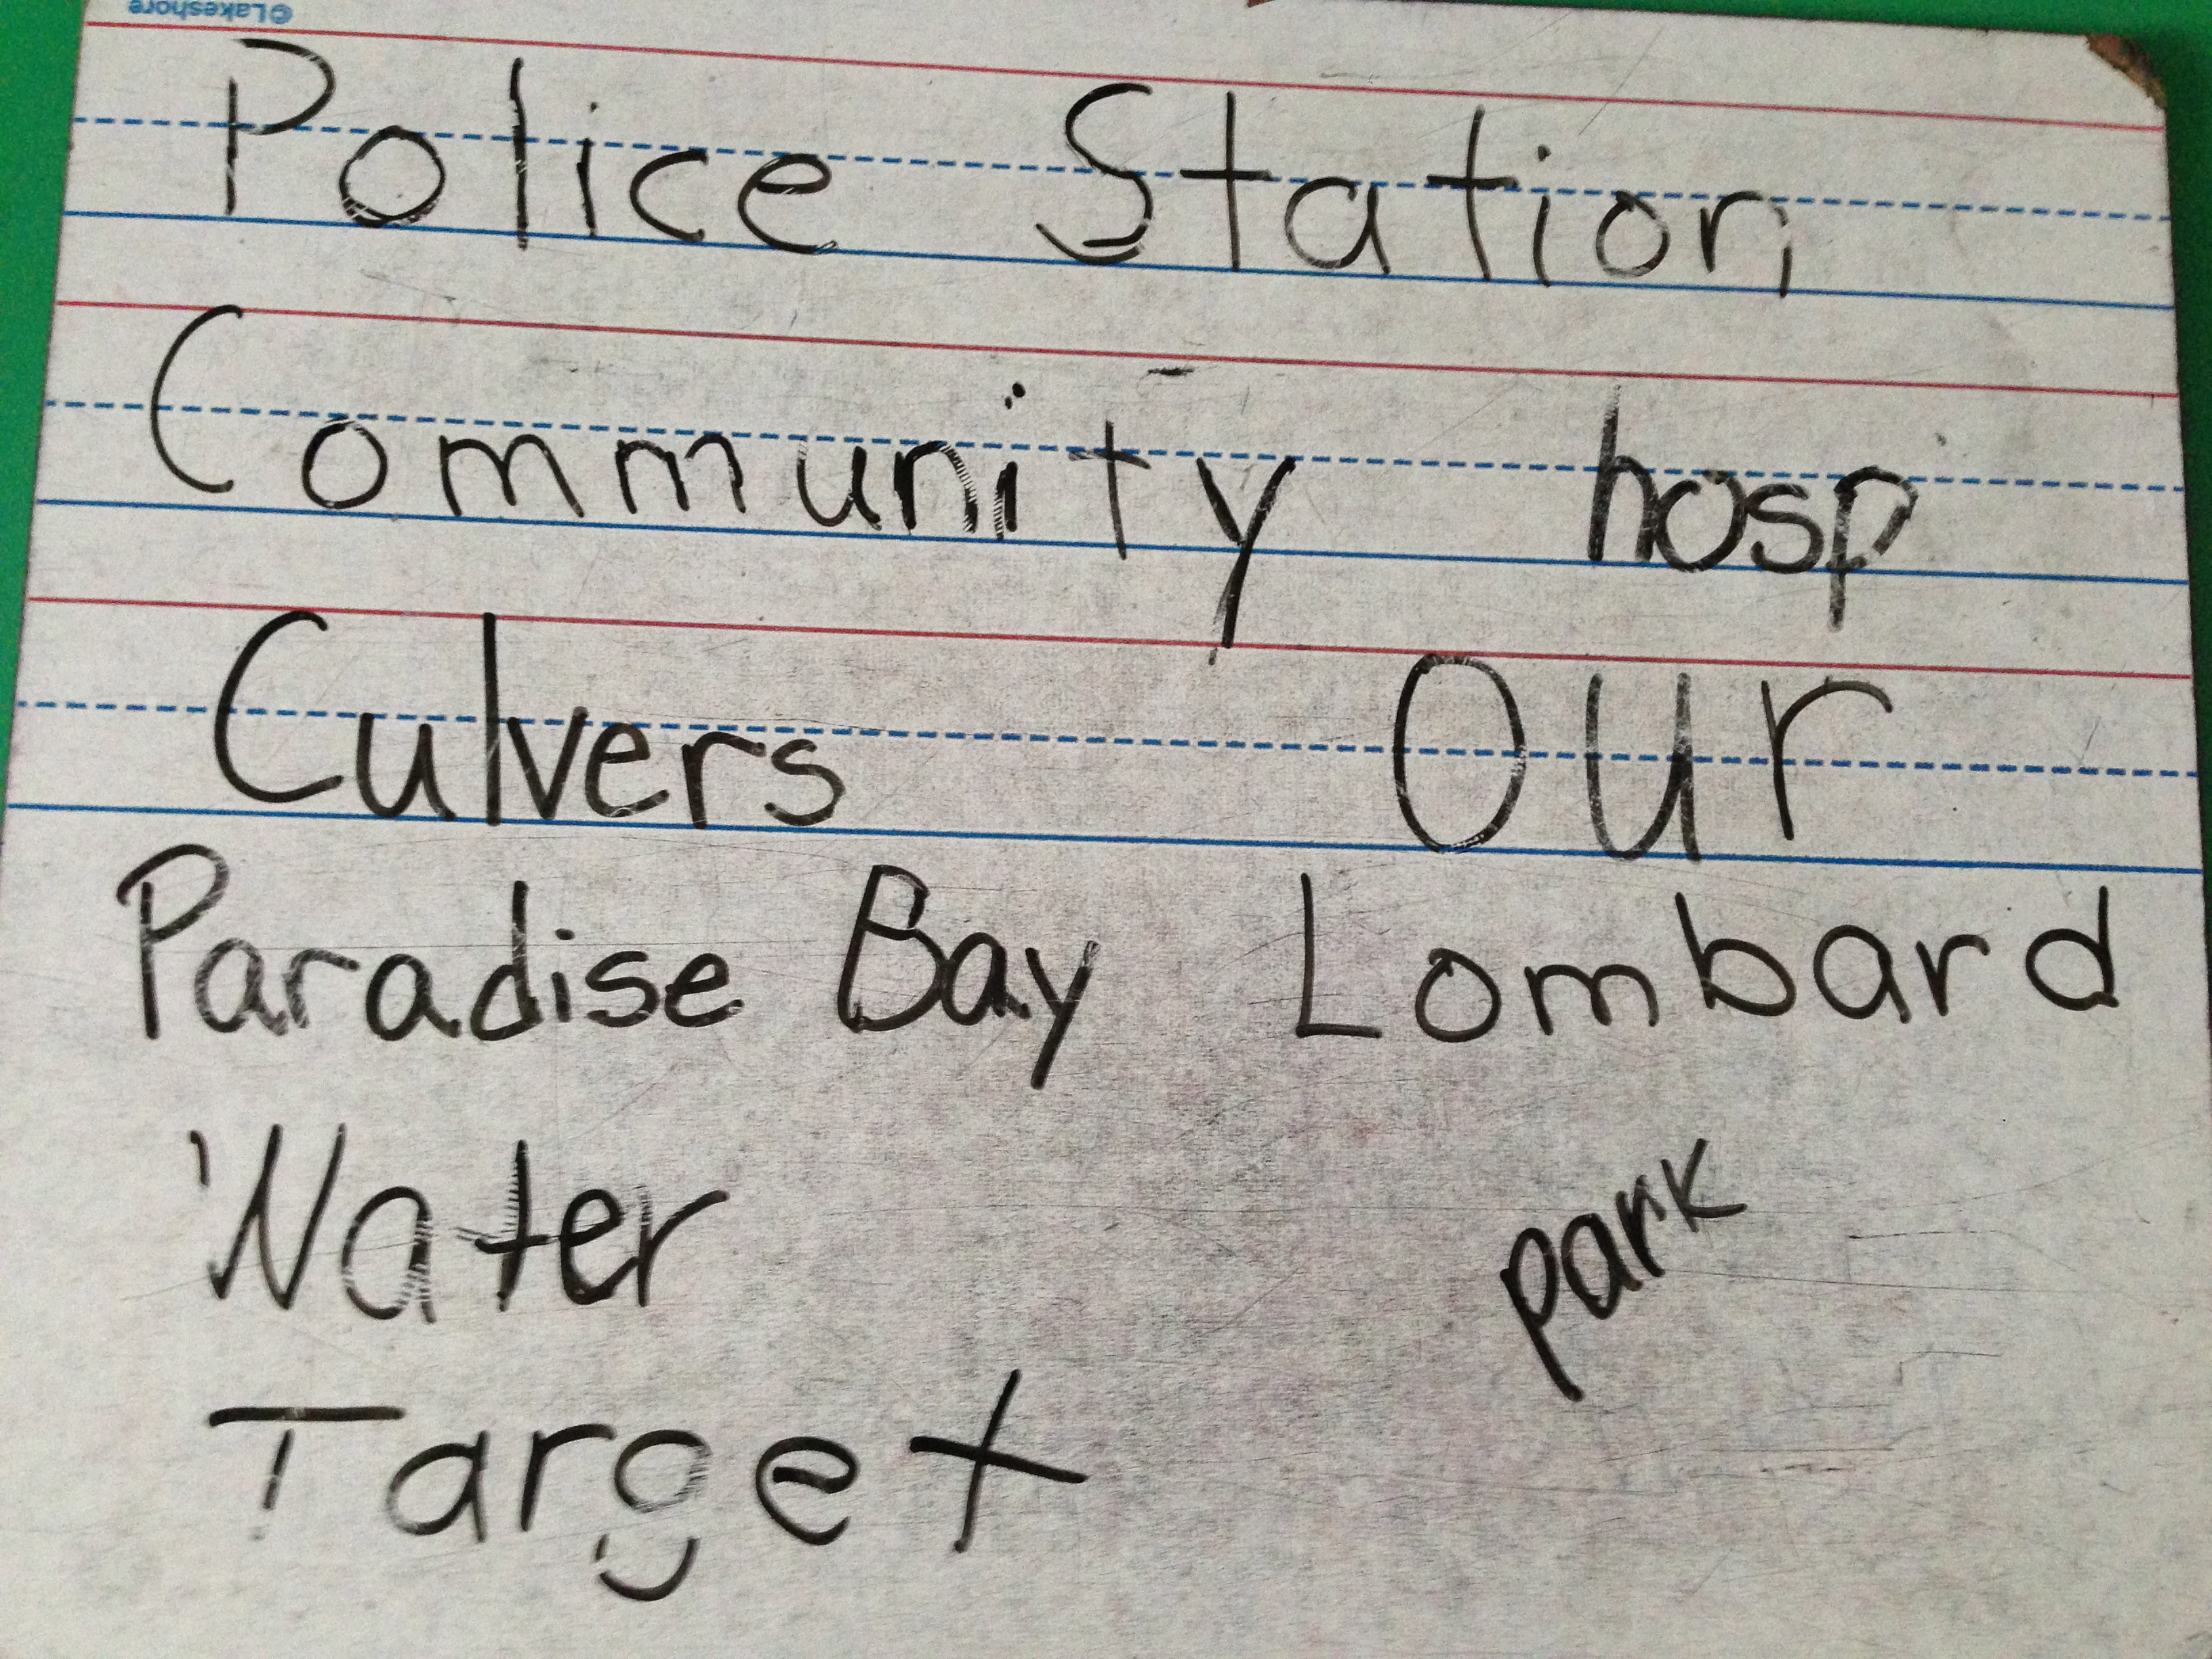 ©Lakeshore
Police Station
Community hosp
Culvers Our
Paradise Bay Lombard
Water park
Target